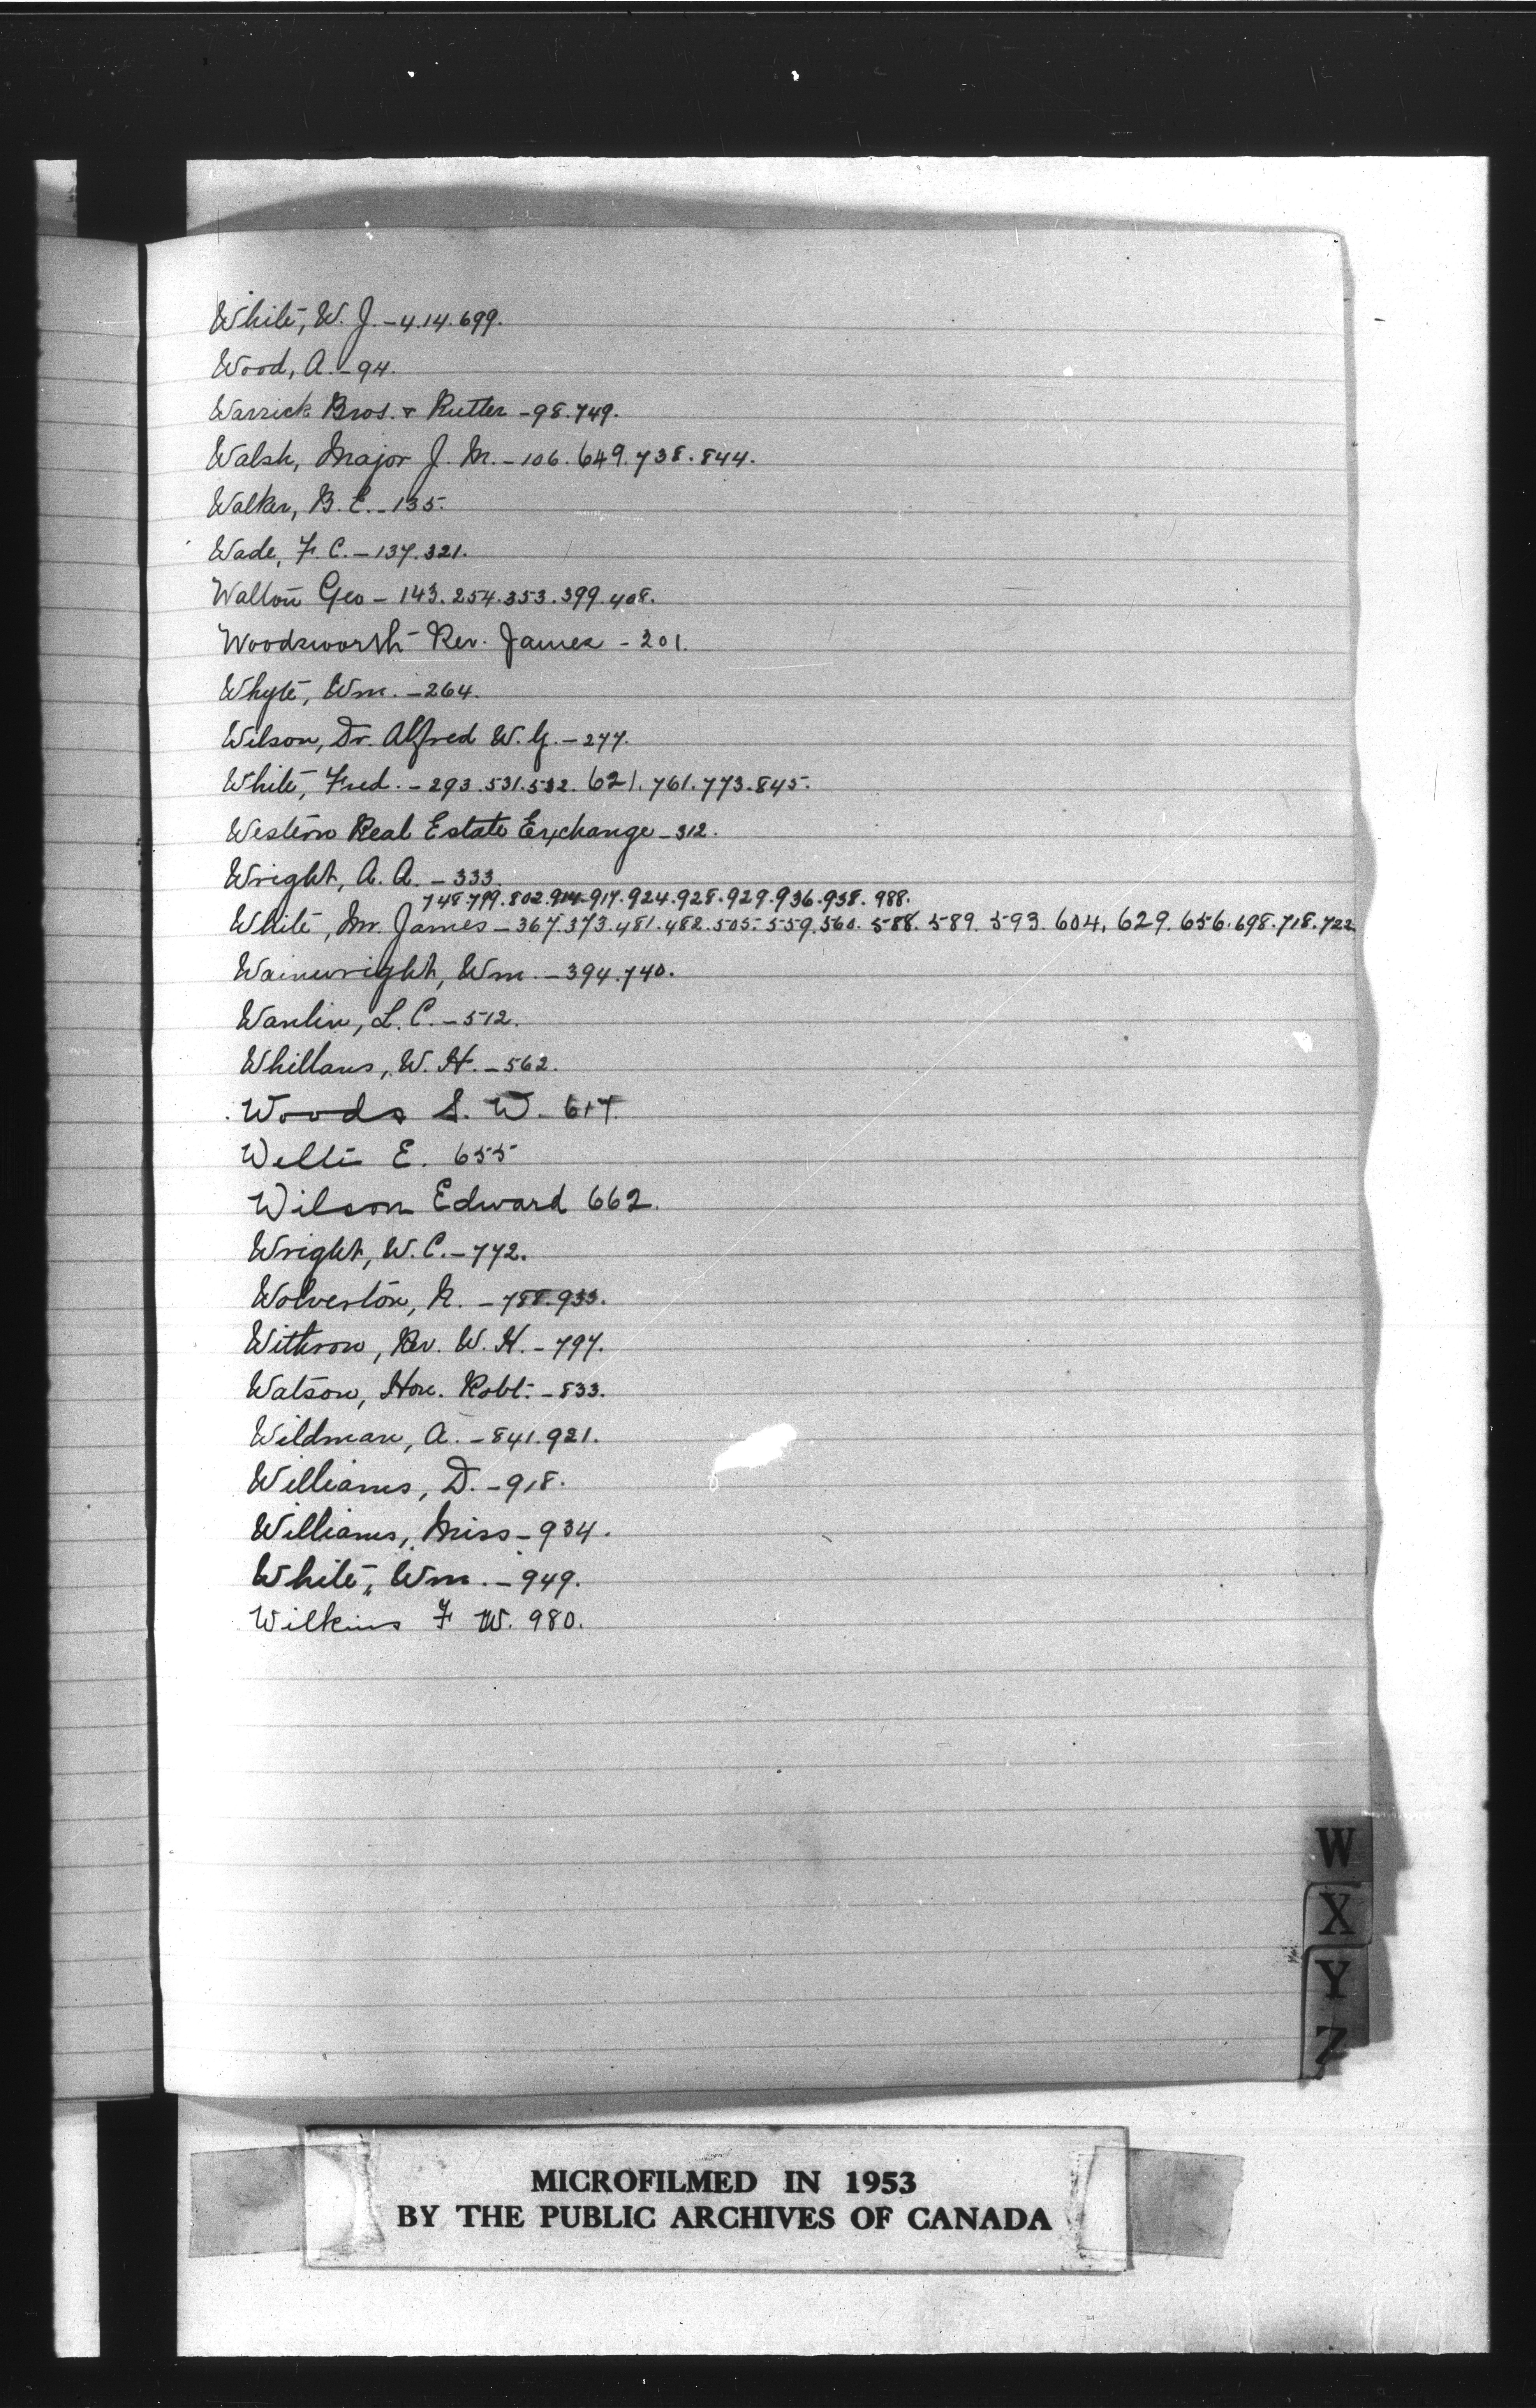 White, W. J. - 4.14.699.
Wood, A. - 94.
Warrick Bros. & Rutter - 98.749.
Walsh, Major J. M. - 106.649.738.844.
Walker, B. E. - 135.
Wade, F. C. - 137.321.
Walton Geo - 143.254.353.399.408.
Woodsworth Rev. James - 201.
Whyte, Wm. - 264.
Wilson, Dr. Alfred W. G. - 277.
White, Fred. - 293.531.532.621.761.773.845.
Western Real Estate Exchange - 312.
Wright, A. A. - 333.
748.799.802.914.917.924.928.929.936.938.988.
White, Mr. James - 367.373.481.482.505.559.560.588.589.593.604.629.656.698.718.722.
Wainwright, Wm. - 394.740.
Wanlin, L. C. - 512.
Whillans, W. H. - 562.
Woods S. W. 617.
E. 655
Wilson Edward 662.
Wright, W. C. - 772.
Wolverton, N. - 788.933.
Withrow, Rev. W. H. - 797.
Watson, Hon. Robt. - 833.
Wildman, A. - 841.921.
Williams, D. - 918.
Williams, Miss - 934.
White, Wm. - 949.
Wilkins F W. 980.
W
X
Y
Z
MICROFILMED IN 1953
BY THE PUBLIC ARCHIVES OF CANADA